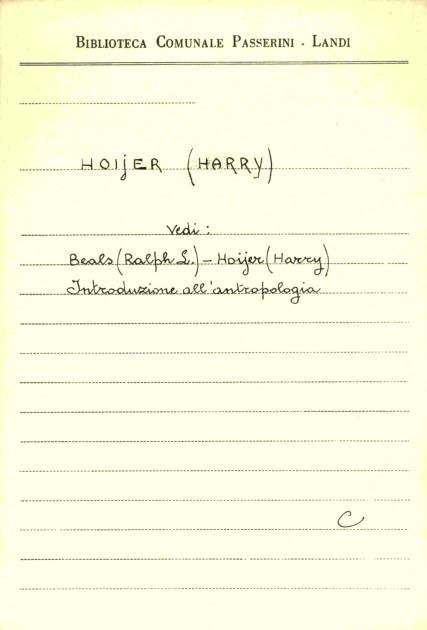 BIBLIOTECA COMUNALE PASSERINI - LANDI
HOIJER (HARRY)
Vedi:
Beals (Ralph L.) – Hoijer (Harry)
Introduzione all'antropologia
C